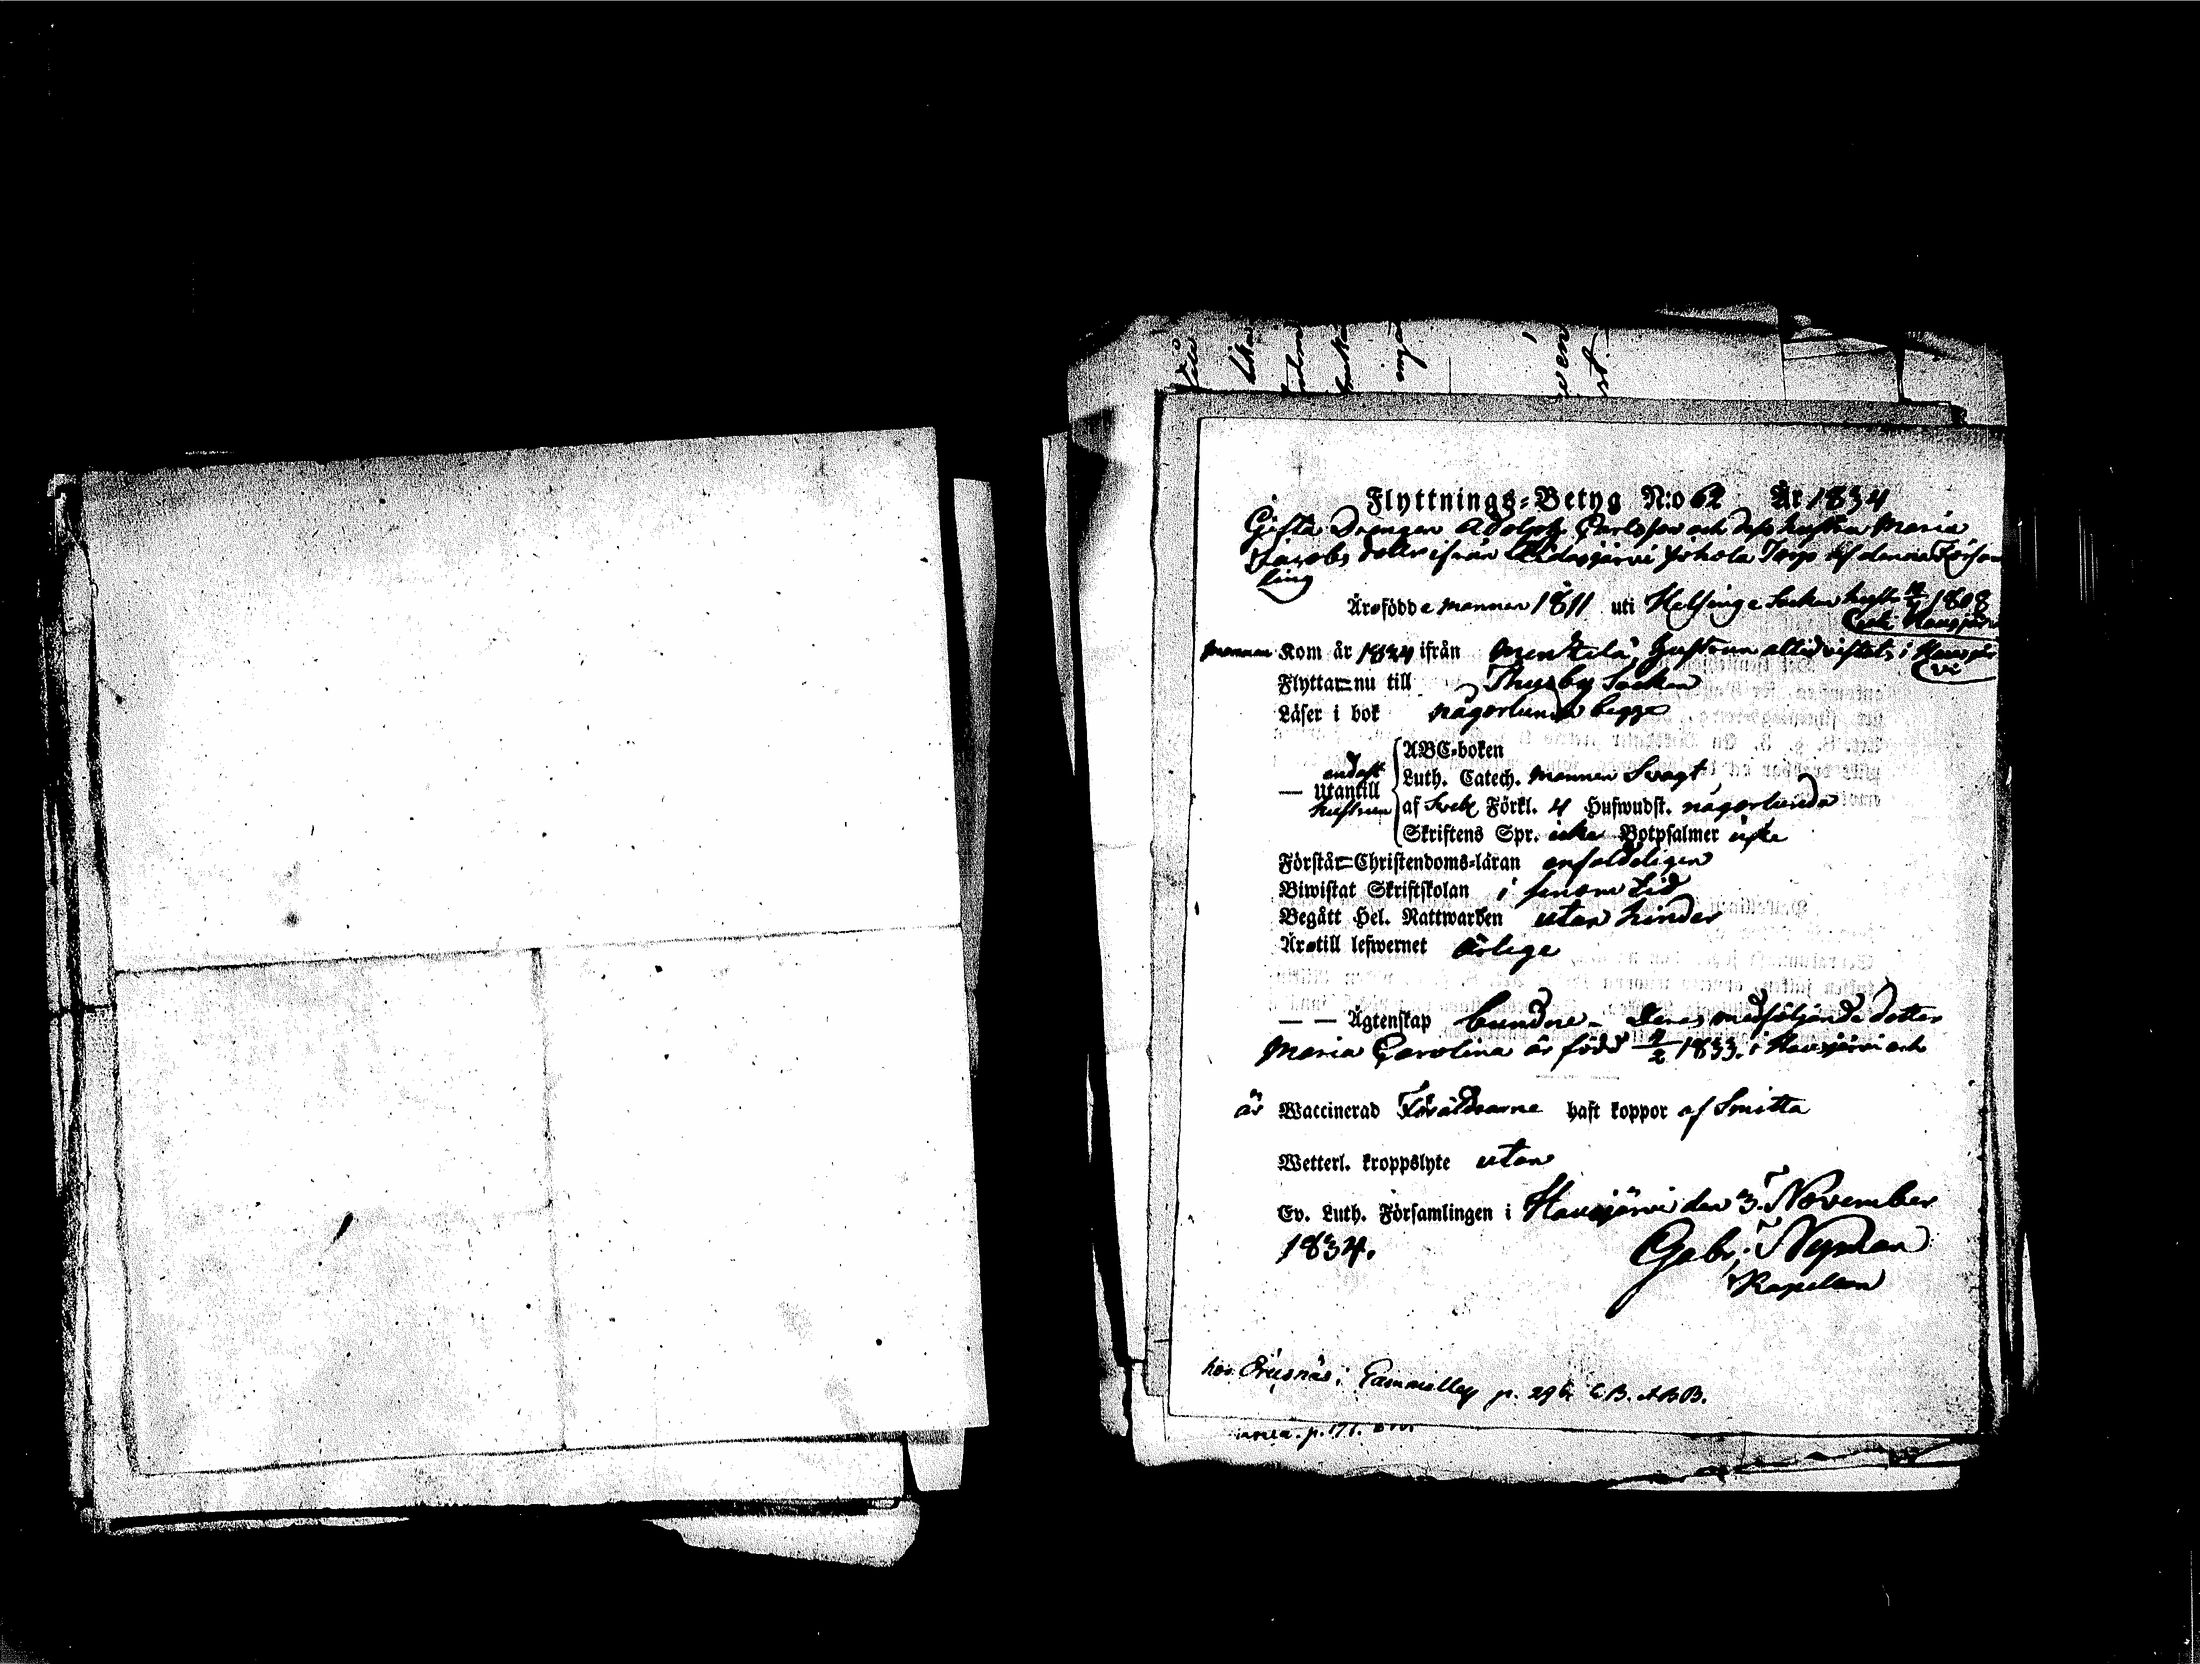 Flyttnings-Betyg N:o 62 År 1834
Gifta Drengen Adolph Carlsson och dess hustru Maria
Jacobs dotter ifrån Torp af denna Försam
ling
Äro födde mannen 1811 uti Helsinge Socken hust. 1808
Hausjärvi
mannen Kom år 1824 ifrån Mentzelä, hustrun altid vistats i Hausjär
vi
Flyttar nu till Thusby Socken
Läser i bok någorlunda begge
ABC-boken
endast
Luth. Catech. mannen Svagt
— utantill
hustrun
af Sveb. Förkl. 4 Hufwudst. någorlunda
Skriftens Spr. icke Botpsalmer icke
Förstår Christendoms-läran enfaldeligen
Biwistat Skriftskolan i sinom tid
Begått Hel. Nattwarden utan hinder
Äro till lefwernet ärlige
— — Ägtenskap bundne - Deras medföljande dotter
Maria Carolina är född 9/2 1833 i Hausjärvi och
är Waccinerad Föräldrarne haft koppor af Smitta
Wetterl. kroppslyte utan
Ev. Luth. Församlingen i Hausjärvi den 3. November
1834.
Gabr. Nyman
Kapellan
p. 296 C.B. A.B.B.
p. 171.